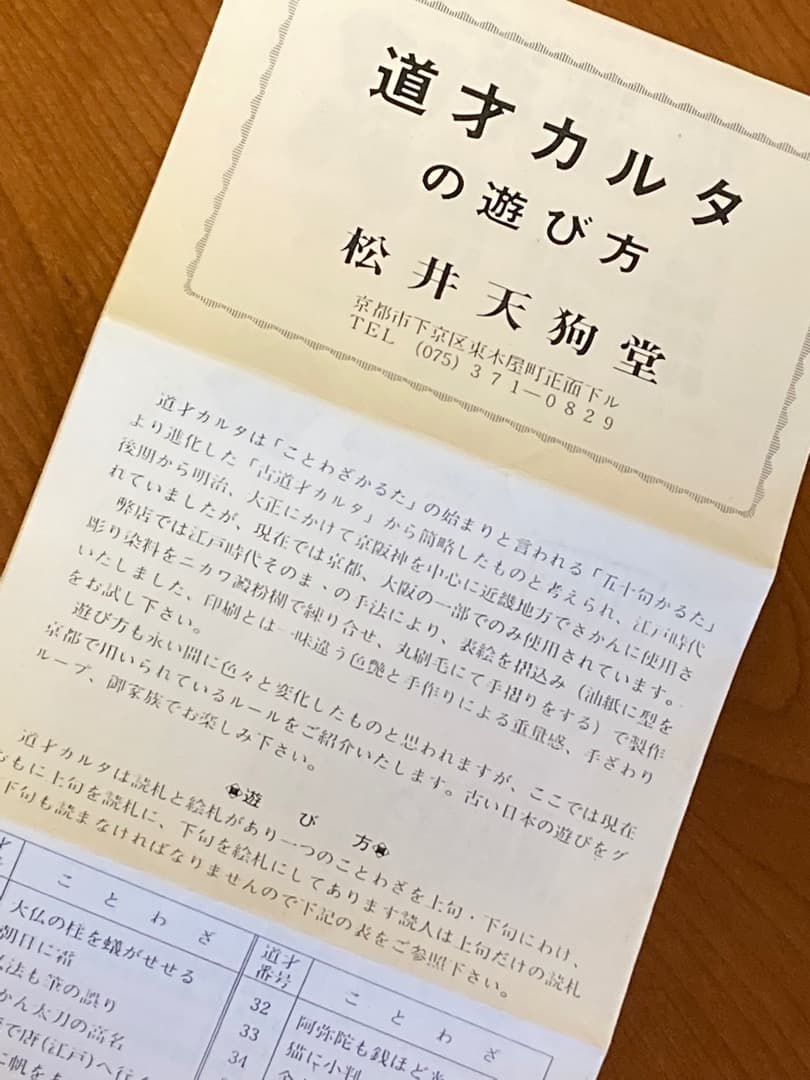 道才カルタ
の遊び方
松井天狗堂
京都市下京区東木屋町正面下ル
TEL (075)371-0829
道才カルタは「ことわざかるた」の始まりと言われる「五十句かるた」
より進化した「古道才カルタ」から簡略したものと考えられ、江戸時代
後期から明治、大正にかけて京阪神を中心に近畿地方でさかんに使用さ
れていましたが、現在では京都、大阪の一部でのみ使用されています。
弊店では江戸時代そのまゝの手法により、表絵を摺込み（油紙に型を
彫り染料をニカワ澱粉糊で練り合せ、丸刷毛にて手摺りをする）で製作
いたしました、印刷とは一味違う色艶と手作りによる重量感、手ざわり
をお試し下さい。
遊び方も永い間に色々と変化したものと思われますが、ここでは現在
京都で用いられているルールをご紹介いたします。古い日本の遊びをグ
ループ、御家族でお楽しみ下さい。
遊び方
道才カルタは読札と絵札があり一つのことわざを上句・下句にわけ、
もに上句を読札に、下句を絵札にしてあります読人は上句だけの読札
下句も読まなければなりませんので下記の表をご参照下さい。
ことわざ
道才番号
ことわざ
大仏の柱を蟻がせせる
32
阿弥陀も銭ほど
朝日に霜
33
猫に小判
法も筆の誤り
34
かん太刀の高名
で唐(江戸)へ行
に帆を